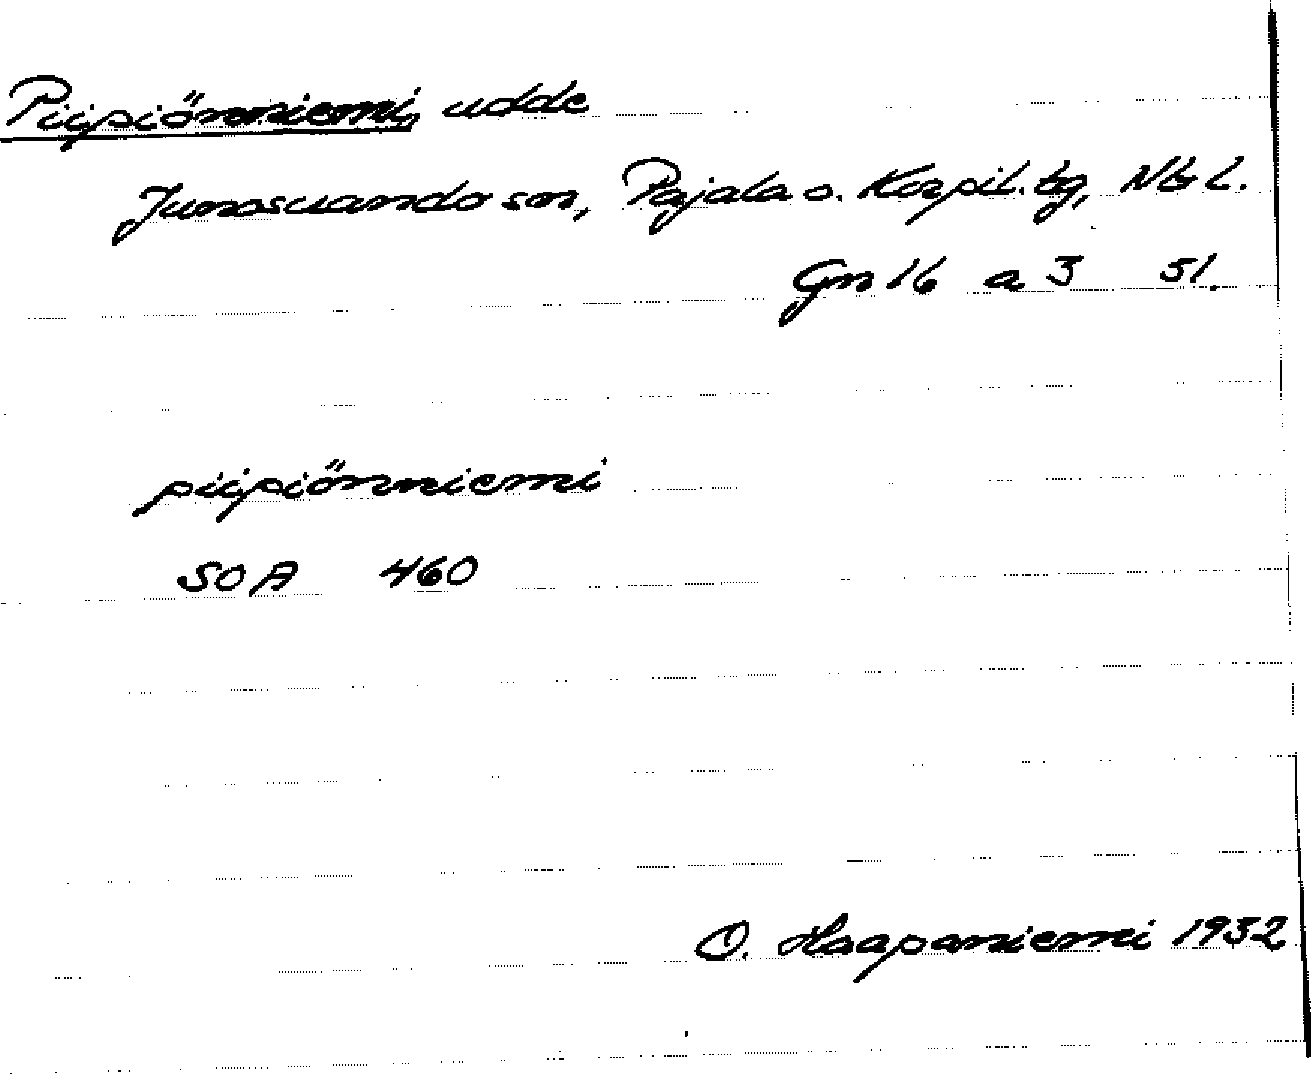 Piipiönniemi, udde
Junosuando sn, Pajala o. Korpil. tg, Nb L.
Gn 16 a 3 51.
piipiönniemi
SOA 460
O. Haapaniemi 1932